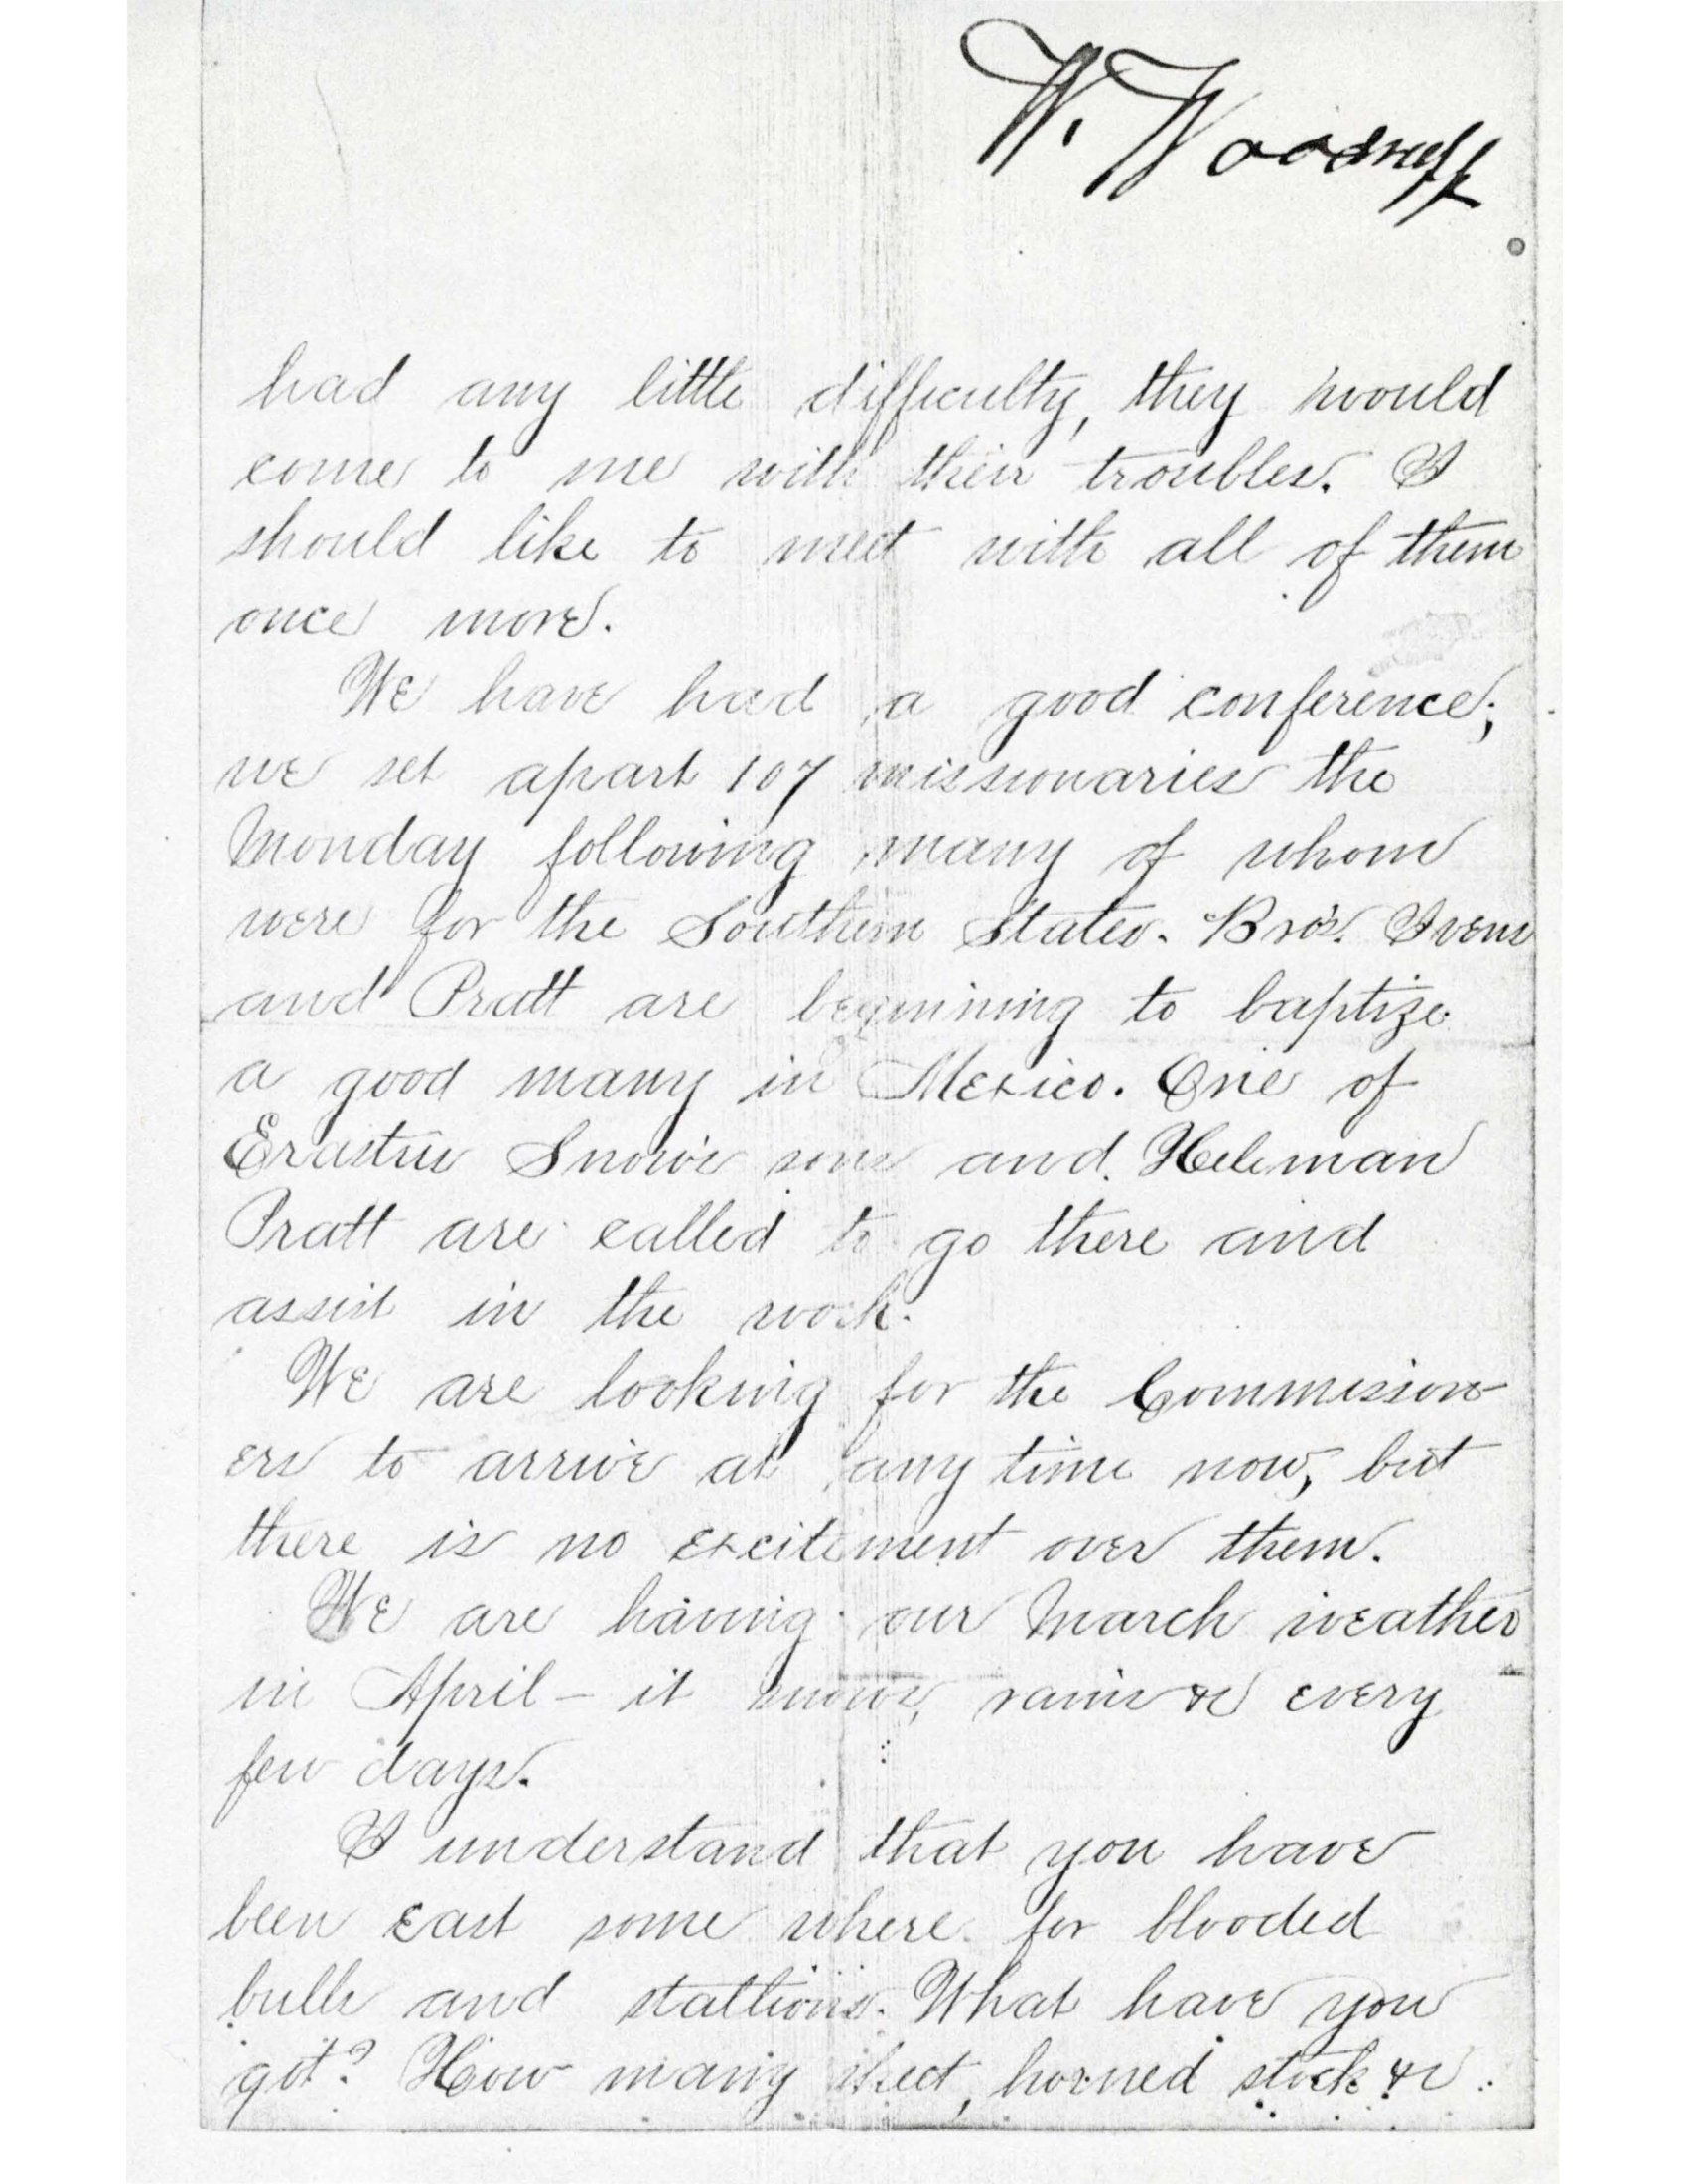 W. Woodruff
had any little difficulty, they would
come to me with their troubles. I
should like to meet with all of them
once more.
We have had a good conference;
we set apart 107 missionaries the
Monday following many of whom
were for the Southern States. Bro's. Ivens
and Pratt are beginning to baptize
a good many in Mexico. One of
Erastus Snow's sons and Heleman
Pratt are called to go there and
assist in the work.
We are looking for the Commission-
ers to arrive at any time now, but
there is no excitement over them.
We are having our March weather
in April - it snows, rains &c every
few days.
I understand that you have
been east some where for blooded
bulls and stallions. What have you
got? How many horned stock &c